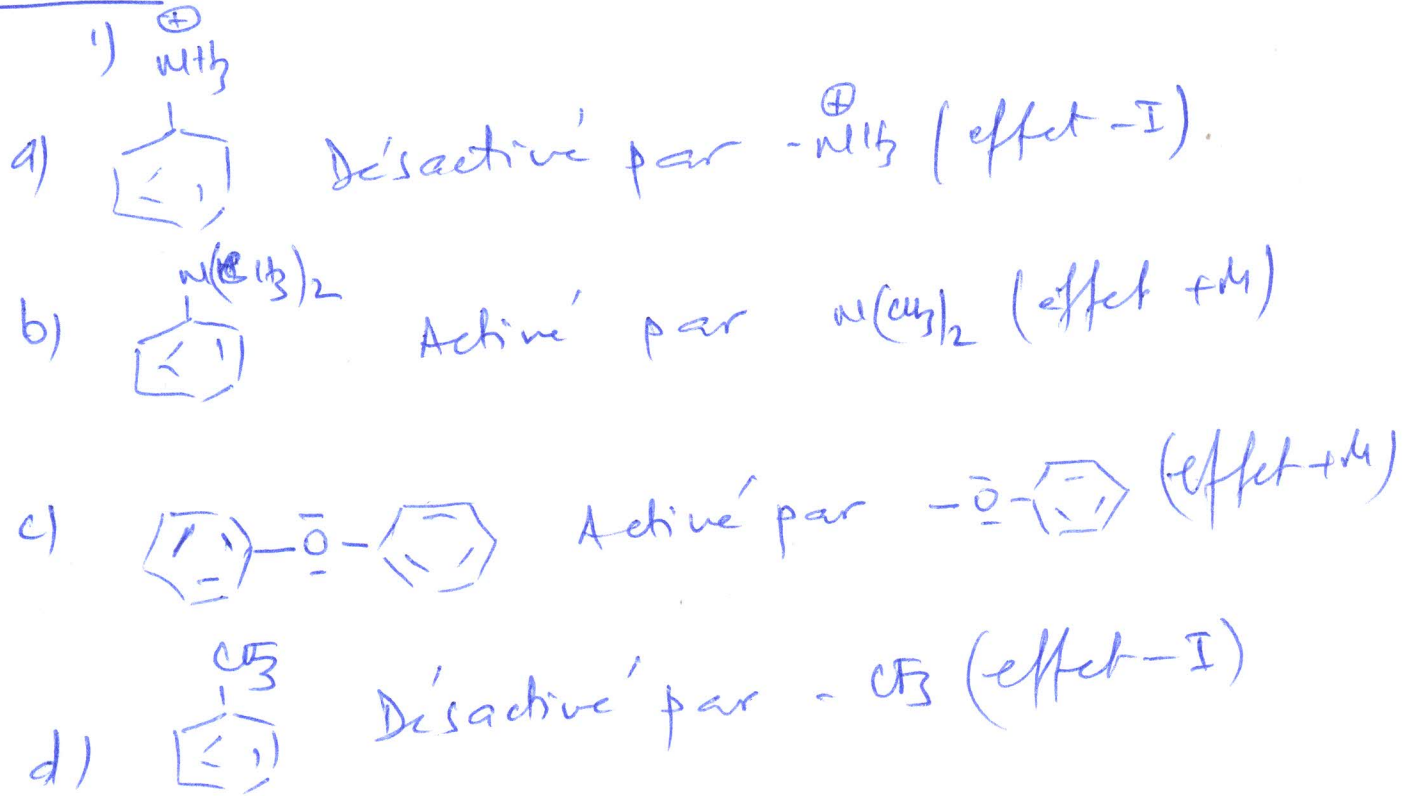 1)
⊕
NH3
a) Désactivé par -NH3 ⊕ (effet -I).
N(CH3)2
b) Activé par N(CH3)2 (effet +M)
c) -O- Activé par -O- (effet +M)
CF3
d) Désactivé par - CF3 (effet -I)